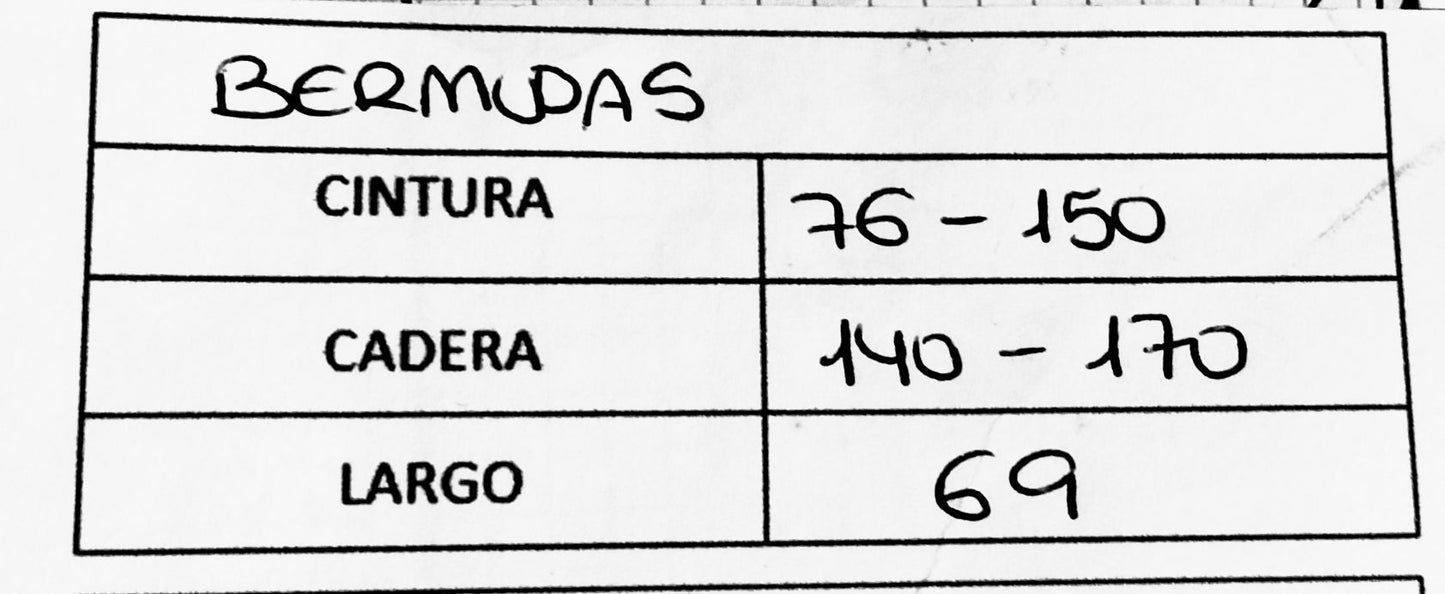 BERMUDAS
CINTURA 76 - 150
CADERA 140 - 170
LARGO 69